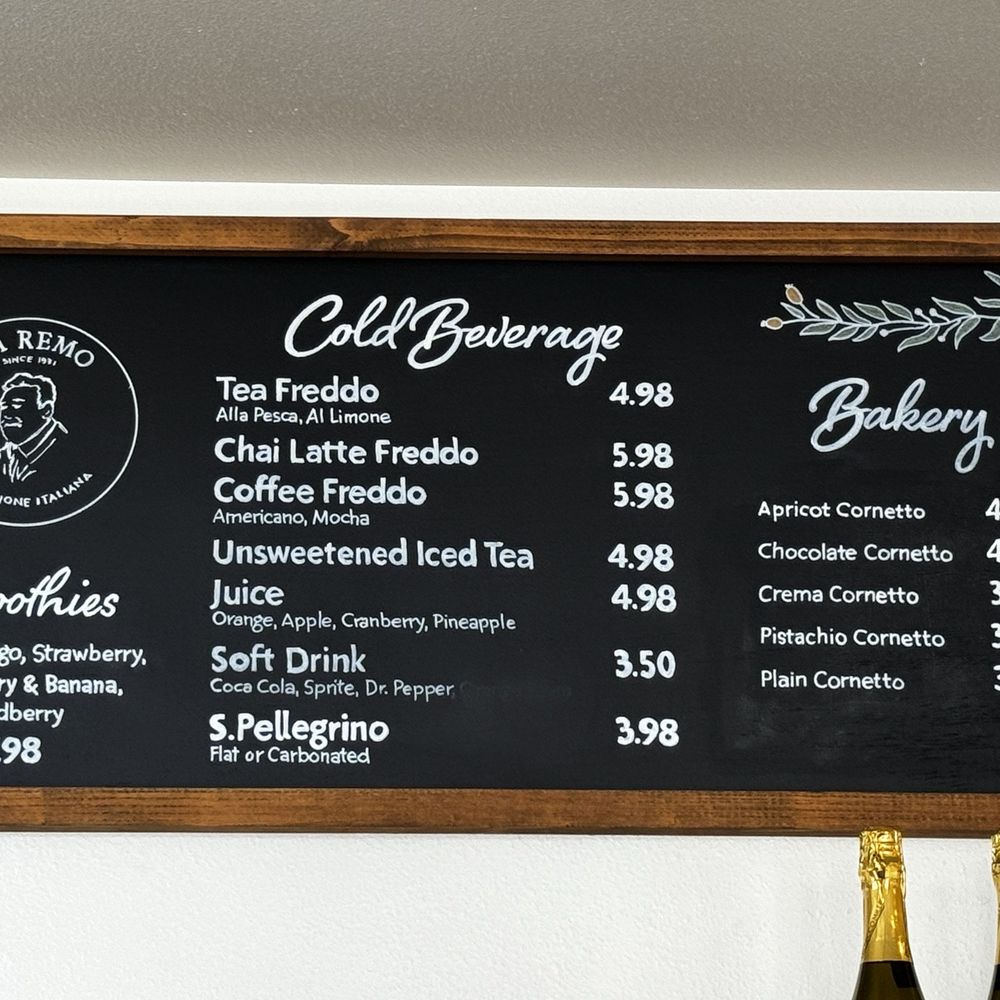 REMO
SINCE 1971
ITALIANA
Strawberry,
& Banana,
Cold Beverage
Tea Freddo 4.98
Alla Pesca, Al Limone
Chai Latte Freddo 5.98
Coffee Freddo 5.98
Americano, Mocha
Unsweetened Iced Tea 4.98
Juice 4.98
Orange, Apple, Cranberry, Pineapple
Soft Drink 3.50
Coca Cola, Sprite, Dr. Pepper
S.Pellegrino 3.98
Flat or Carbonated
Bakery
Apricot Cornetto
Chocolate Cornetto
Crema Cornetto
Pistachio Cornetto
Plain Cornetto